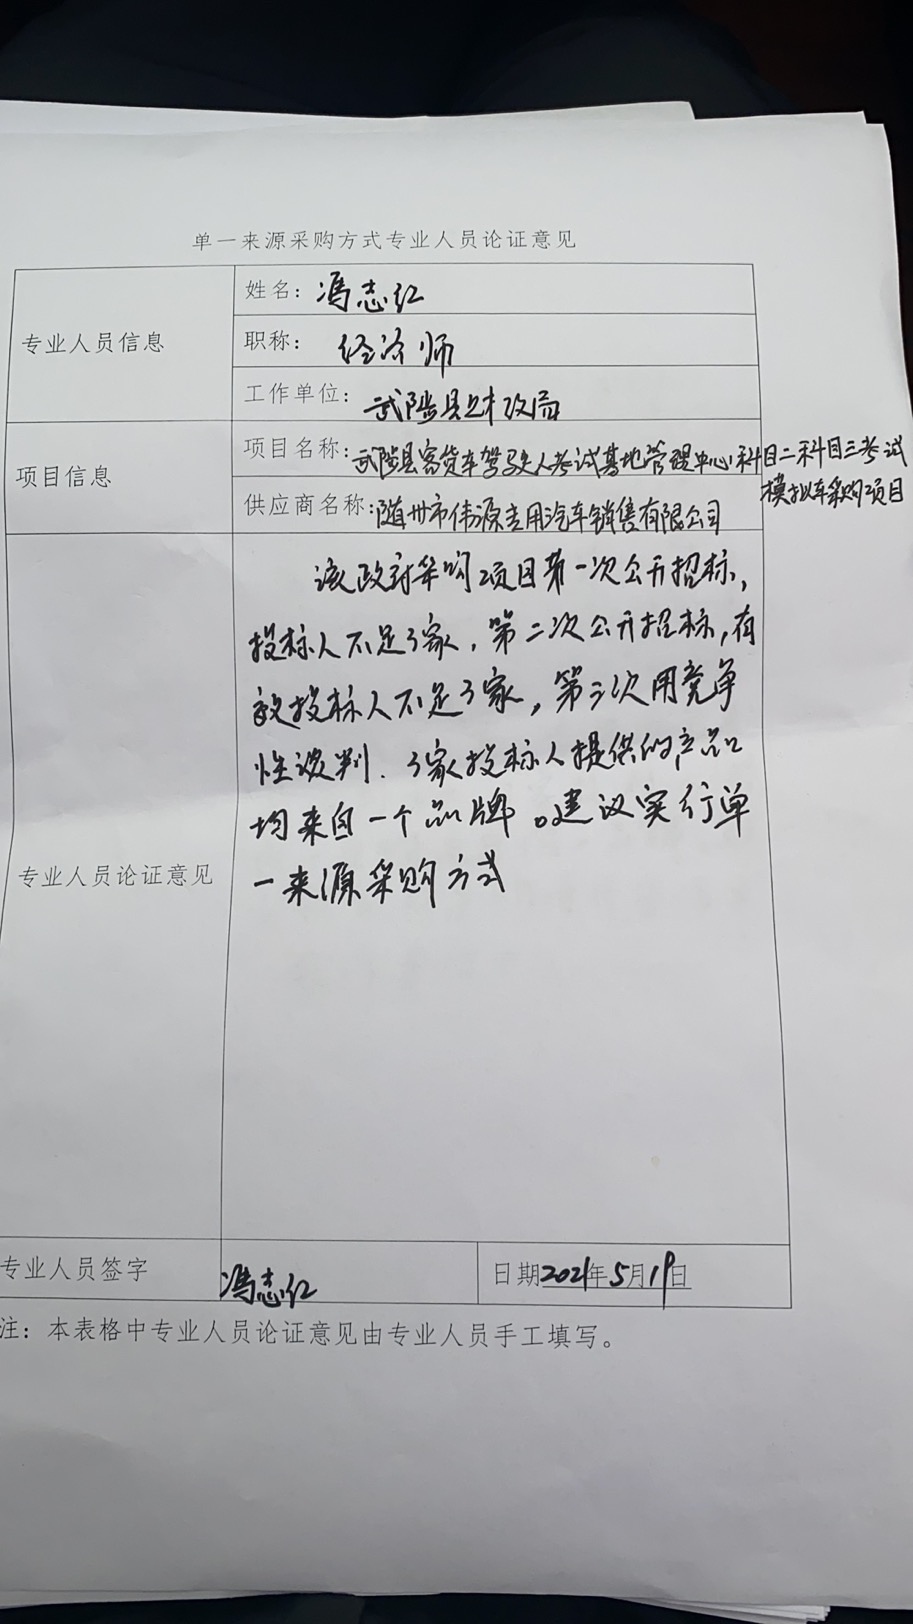 单一来源采购方式专业人员论证意见
专业人员信息
姓名：冯志红
职称：经济师
工作单位：武陟县财政局
项目信息
项目名称：武陟县客货车驾驶人考试基地管理中心科目二科目三考试
模拟车采购项目
供应商名称：随州市伟源专用汽车销售有限公司
专业人员论证意见
该政府采购项目第一次公开招标，
投标人不足3家，第二次公开招标，有
效投标人不足3家，第三次用竞争
性谈判．3家投标人提供的产品
均来自一个品牌。建议实行单
一来源采购方式
专业人员签字
冯志红
日期2021年5月19日
注：本表格中专业人员论证意见由专业人员手工填写。